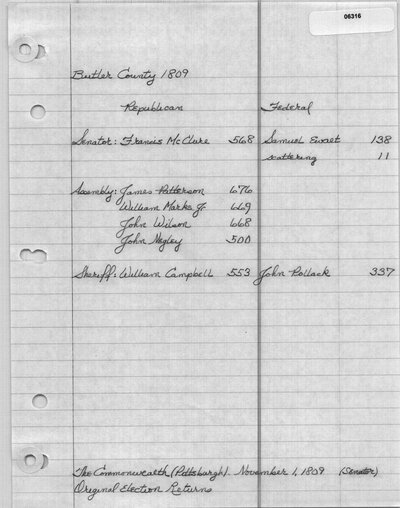 06316
Butler County 1809
Republican Federal
Senator: Francis McClure 568 Samuel Ewalt 138
scattering 11
Assembly: James Patterson 676
William Marks Jr. 669
John Wilson 668
John Negley 500
Sheriff: William Campbell 553 John Pollack 337
The Commonwealth (Pittsburgh). November 1, 1809 (Senator)
Original Election Returns